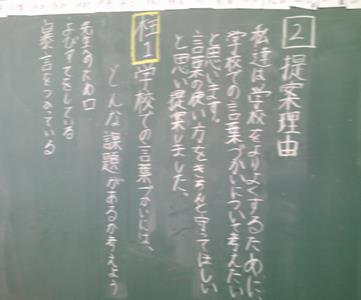 2 提案理由
私達は学校をよりよくするために
学校での言葉づかいについて考えたい
と思います。
言葉の使い方をきちんと守ってほしい
と思い提案しました。
柱1 学校での言葉づかいには、
どんな課題があるか考えよう
先生のため口
よびすてをしている
暴言をつかっている